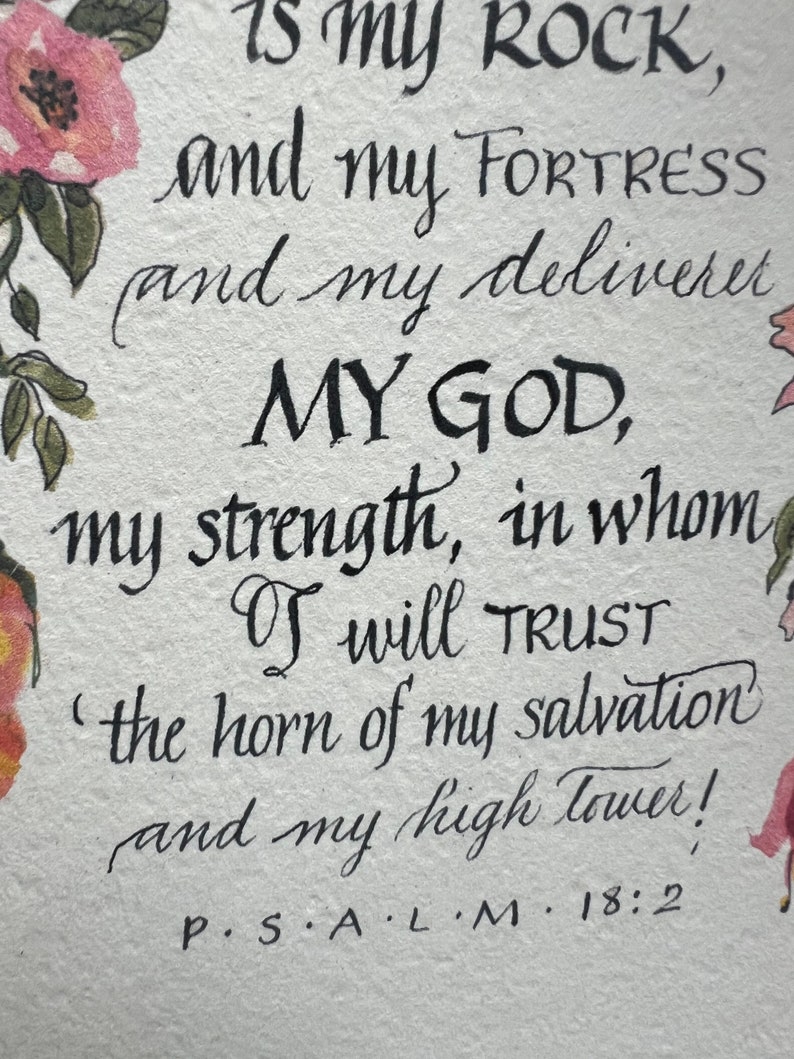 is my ROCK,
and my FORTRESS
and my deliverer
MY GOD,
my strength, in whom
I will TRUST
'the horn of my salvation
and my high tower!
P·S·A·L·M· 18:2